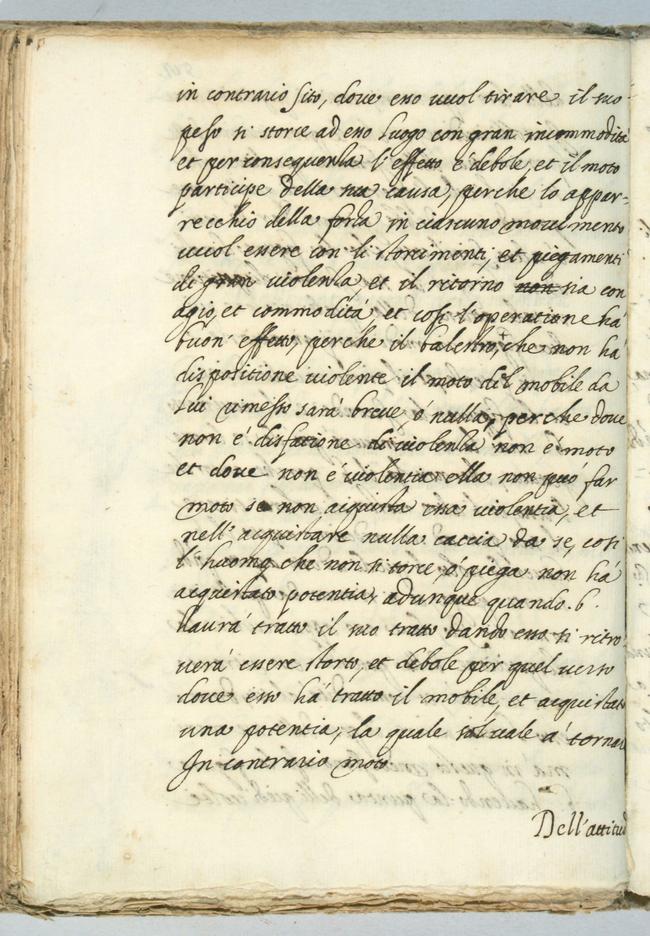 in contrario sito, dove esso vuol tirare il suo
peso si storce ad esso luogo con gran incommodità
et per consequenza l'effetto é debole, et il moto
participe della sua causa, perche lo appar-
recchio della forza in ciascuno movimento
vuol essere con li storcimenti, et piegamenti
di gran violenza, et il ritorno non sia con
agio, et commodità et cosi l'operatione há
buon' effetto, perche il balestro, che non há
dispositione violente il moto del mobile da
lui rimesso sará breve, ó nullo, perche dove
non é disfatione di violenza non é moto
et dove non é violentia ella non può far
moto se non acquista una violentia, et
nell' acquistare nulla caccia da se, cosi
l'huomo che non si torce, ó piega non há
acquistato potentia, adunque quando .b.
haurá tratto il suo tratto dardo esso si ritro
verá essere storto, et debole per quel verso
dove esso há tratto il mobile, et acquistato
una potentia, la quale sol vale á tornar
In contrario moto
Dell'attitud